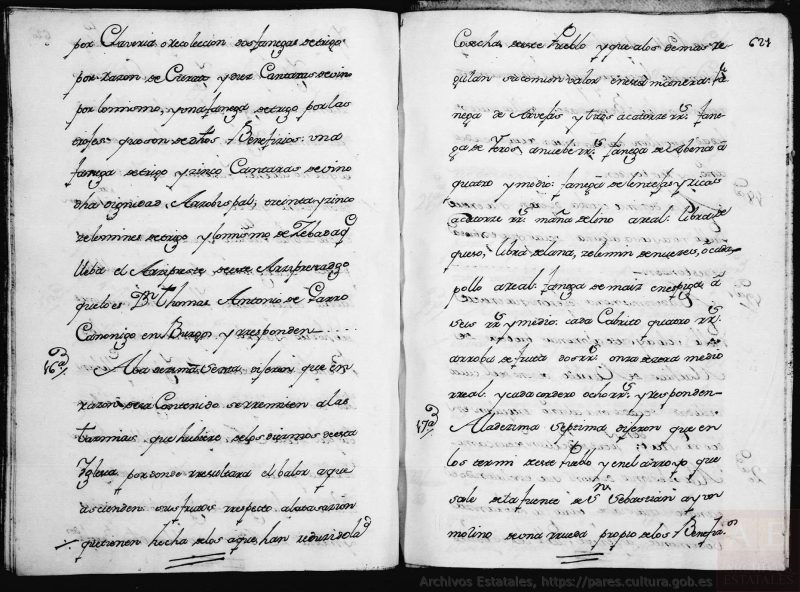 por Claveria o recoleccion dos fanegas de trigo
por razon de Cuarta y diez Cantaras de vino
por lo mismo, y una fanega de trigo por las
que son de dhos Beneficios: una
fanega de trigo y zinco Cantaras de vino
dha dignidad Arzobispal; treinta y zinco
zelemines de trigo y lo mismo de Zebada q
lleba el Arzipreste de este Arziprestazgo
que lo es Dn Thomas Antonio de Garro
Canonigo en Burgos y rresponden
16a/ A la dezima sexta dijeron que en
razon de su Contenido se rremiten a las
tazmias que hubiere de los diezmos de esta
Yglesia por donde rresultara el balor a que
ascienden sus frutos rrespecto a la tasazion
que tienen hecha de los a que han reduzido la
621
Cosecha de este Pueblo y que a los demas re
gulan su comun valor en esta manera: fa
nega de Arvejas y titos a catorze rrs fane
ga de Yeros a nuebe rrs fanega de Abena a
quatro y medio: fanega de lentejas y ricas
a catorze rrs maña de lino a real: libra de
queso, libra de lana, zelemin de nuezes, o cada
pollo a real: fanega de maiz en espiga a
seis rrs y medio: cada Cabrito quatro rrs:
arroba de fruta dos rrs onza de zera medio
rreal: y cada cordero ocho rrs y responden
17a/ A la dezima septima dijeron que en
los termi de este Pueblo y en el arroyo que
sale de la fuente de Sn Sebastian ay un
molino de una rrueda propio de los Benefizos
Archivos Estatales, https://pares.cultura.gob.es